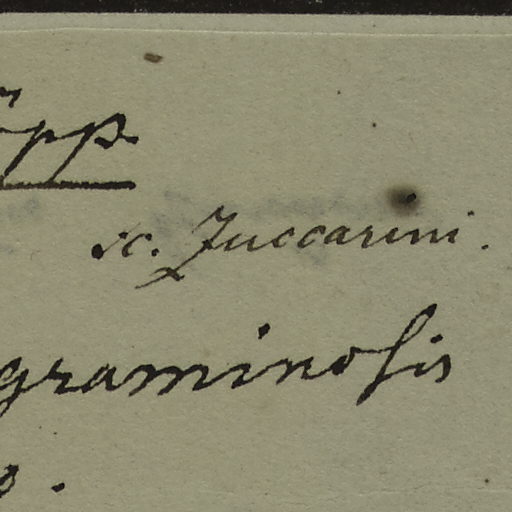 Hpp.
sc. Zuccarini.
graminosis
o.